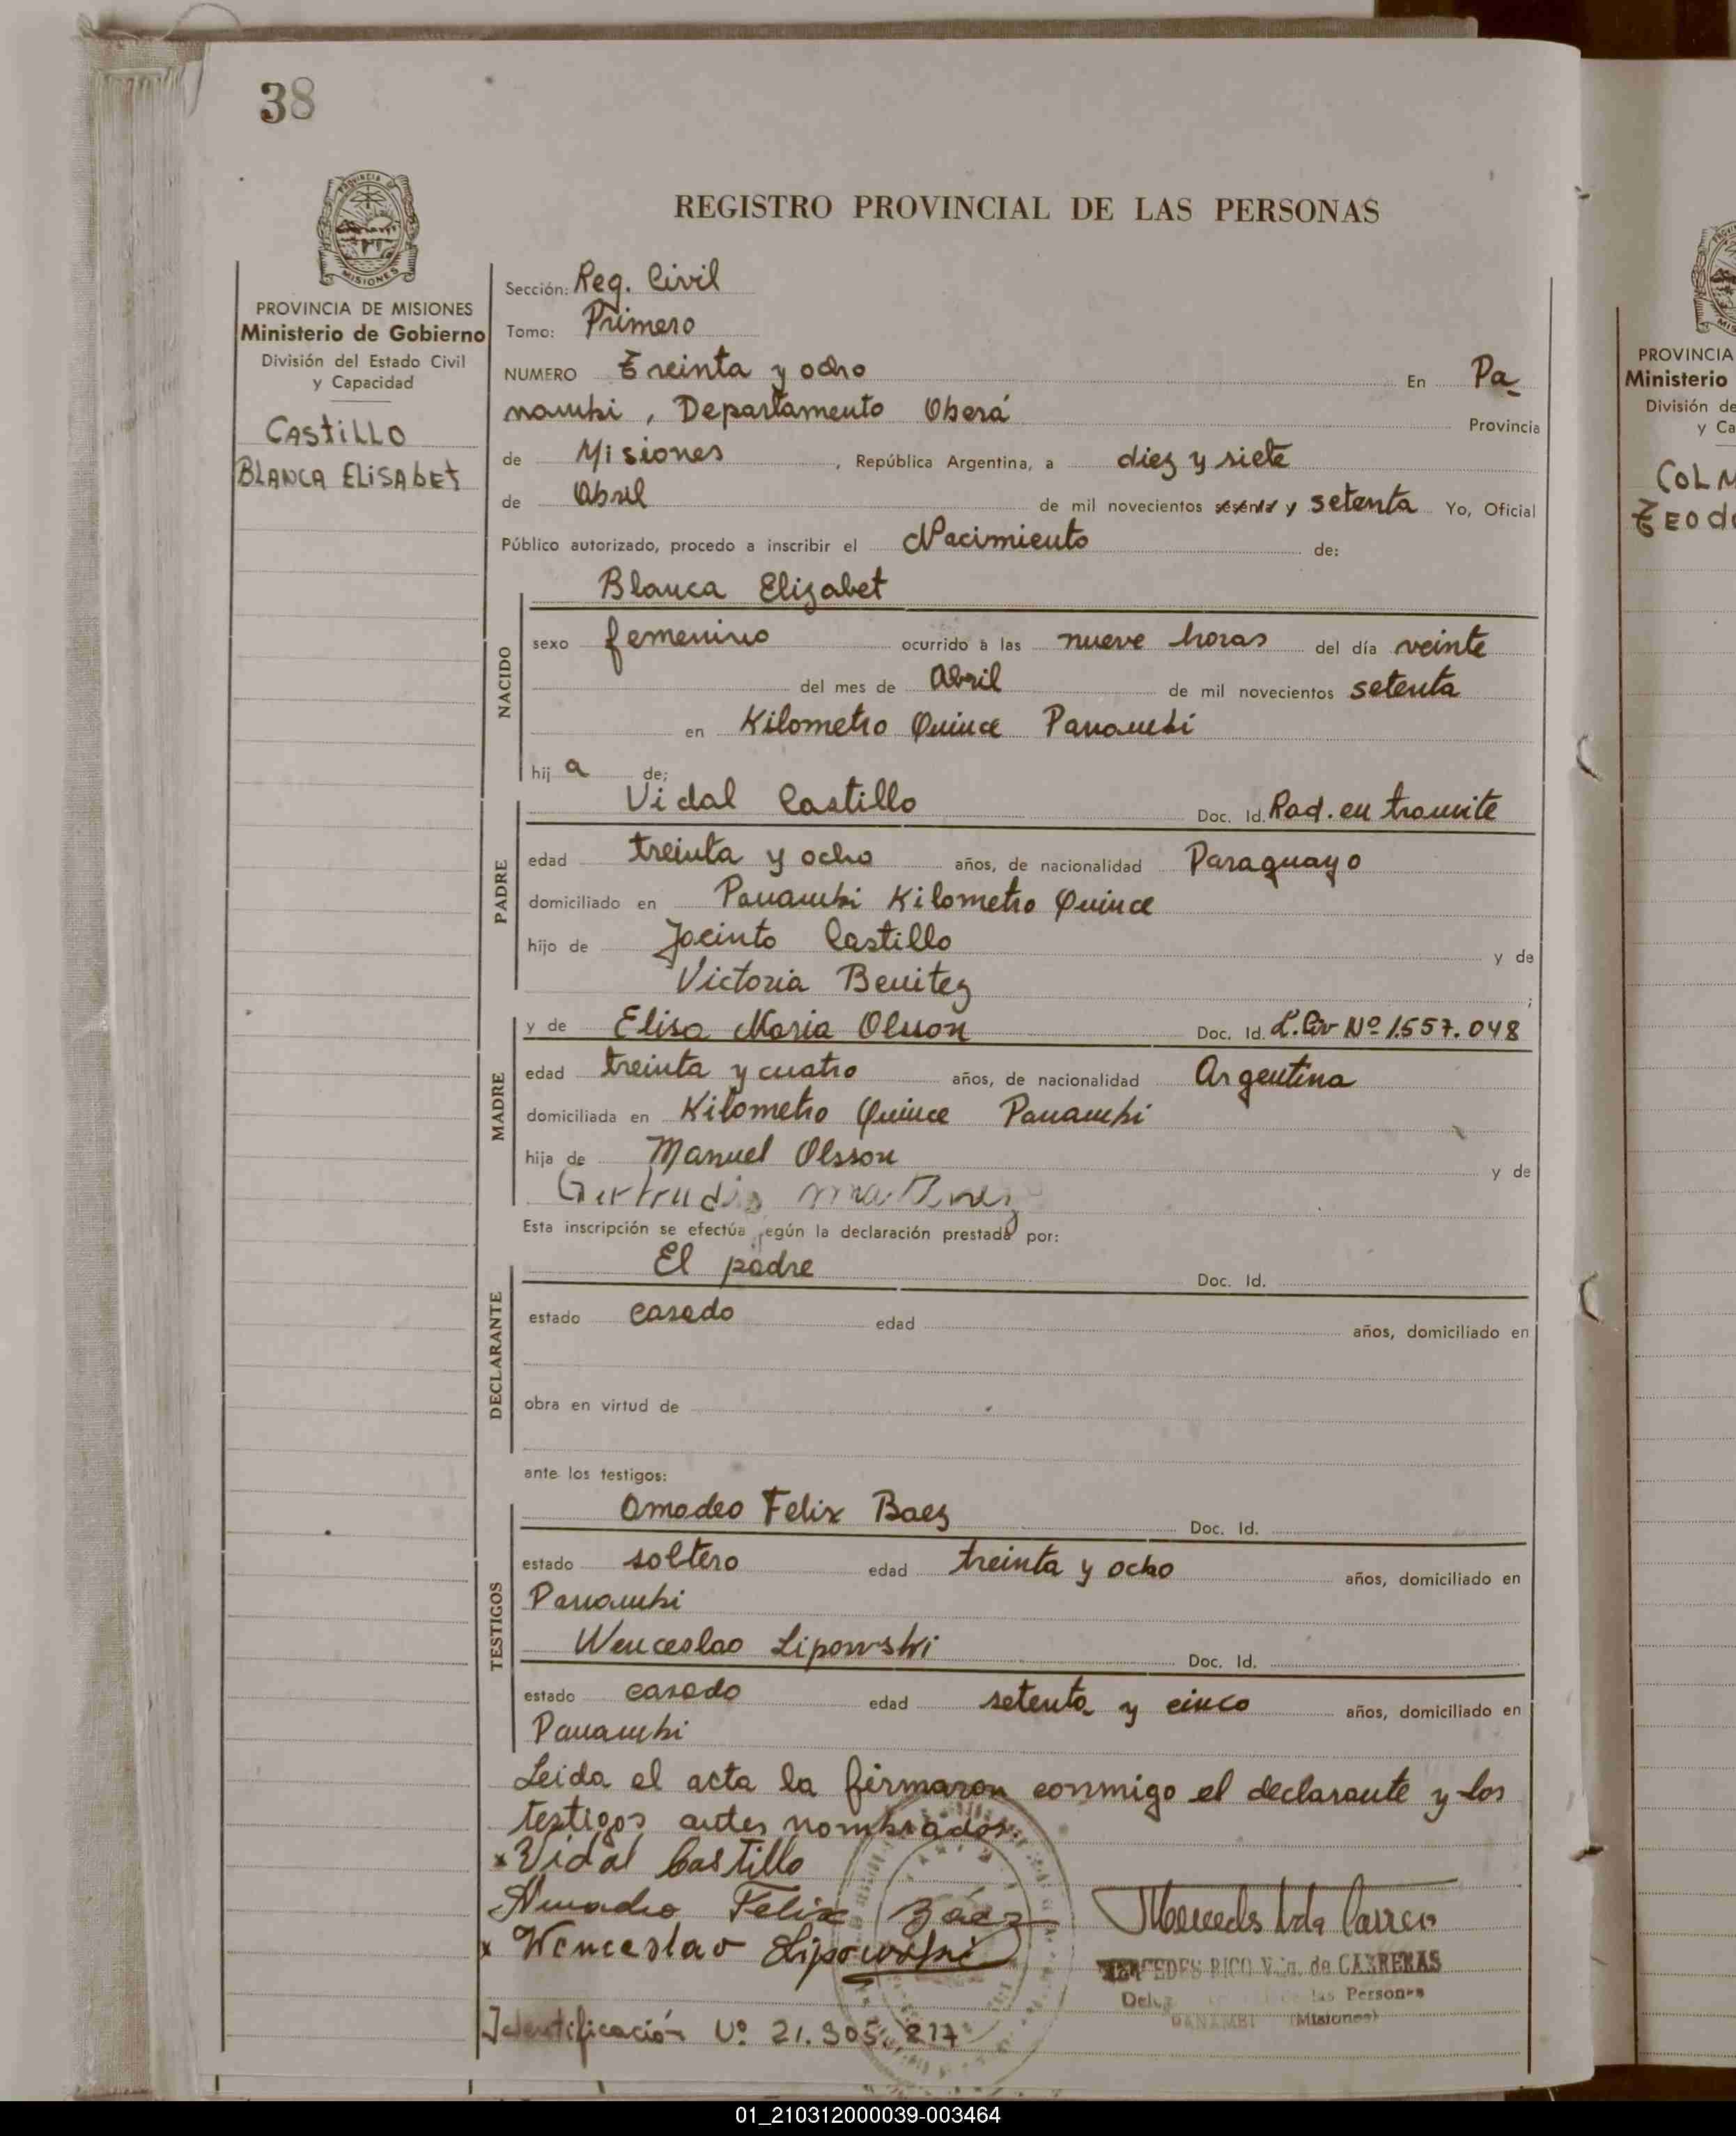 38
REGISTRO PROVINCIAL DE LAS PERSONAS
PROVINCIA DE MISIONES
MISIONES
PROVINCIA DE MISIONES
Ministerio de Gobierno
División del Estado Civil
y Capacidad
CASTILLO
BLANCA ELISABET
Sección: Reg. Civil
Tomo: Primero
NUMERO Treinta y ocho En Pa-
nambi, Departamento Oberá Provincia
de Misiones, República Argentina, a diez y siete
de Abril de mil novecientos sesenta y setenta Yo, Oficial
Público autorizado, procedo a inscribir el Nacimiento de:
Blanca Elizabet
NACIDO
sexo femenino ocurrido a las nueve horas del día veinte
del mes de Abril de mil novecientos setenta
en Kilometro Quince Panambi
hij a de:
PADRE
Vidal Castillo Doc. Id. Rad. en tramite
edad treinta y ocho años, de nacionalidad Paraguayo
domiciliado en Panambi Kilometro Quince
hijo de Jacinto Castillo y de
Victoria Benitez ;
MADRE
y de Elisa Maria Olsson Doc. Id. L. Civ Nº 1.557.048
edad treinta y cuatro años, de nacionalidad Argentina
domiciliada en Kilometro Quince Panambi
hija de Manuel Olsson y de
Gertrudis Martinez
Esta inscripción se efectúa según la declaración prestada por:
DECLARANTE
El padre Doc. Id.
estado casado edad años, domiciliado en
obra en virtud de
ante los testigos:
TESTIGOS
Amadeo Felix Baez Doc. Id.
estado soltero edad treinta y ocho años, domiciliado en
Panambi
Wenceslao Lipowski Doc. Id.
estado casado edad setenta y cinco años, domiciliado en
Panambi
Leida el acta la firmaron conmigo el declarante y los
testigos antes nombrados.
x Vidal Castillo
Amadeo Felix Báez
x Wenceslao Lipowski
MERCEDES RICO Vda. de CARRERAS
las Personas
PANAMBI (Misiones)
Identificación Nº 21.305.217
PROVINCIA
Ministerio
División de
y Ca
COLM
TEODO
01_210312000039-003464